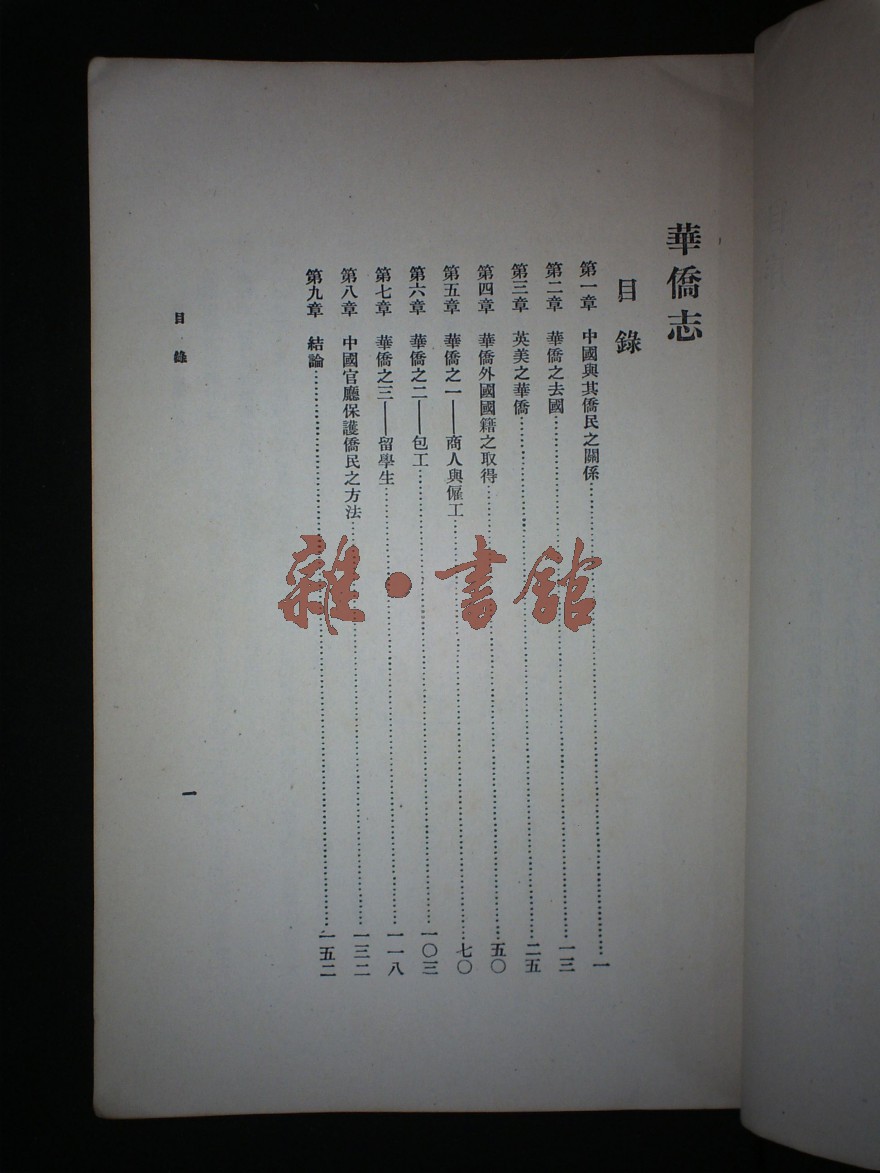 華僑志
目錄
第一章 中國與其僑民之關係……一
第二章 華僑之去國……一三
第三章 英美之華僑……二五
第四章 華僑外國國籍之取得……五〇
第五章 華僑之一——商人與僱工……七〇
第六章 華僑之二——包工……一〇三
第七章 華僑之三——留學生……一一八
第八章 中國官廳保護僑民之方法……一三二
第九章 結論……一五二
目錄
一
雜·書館